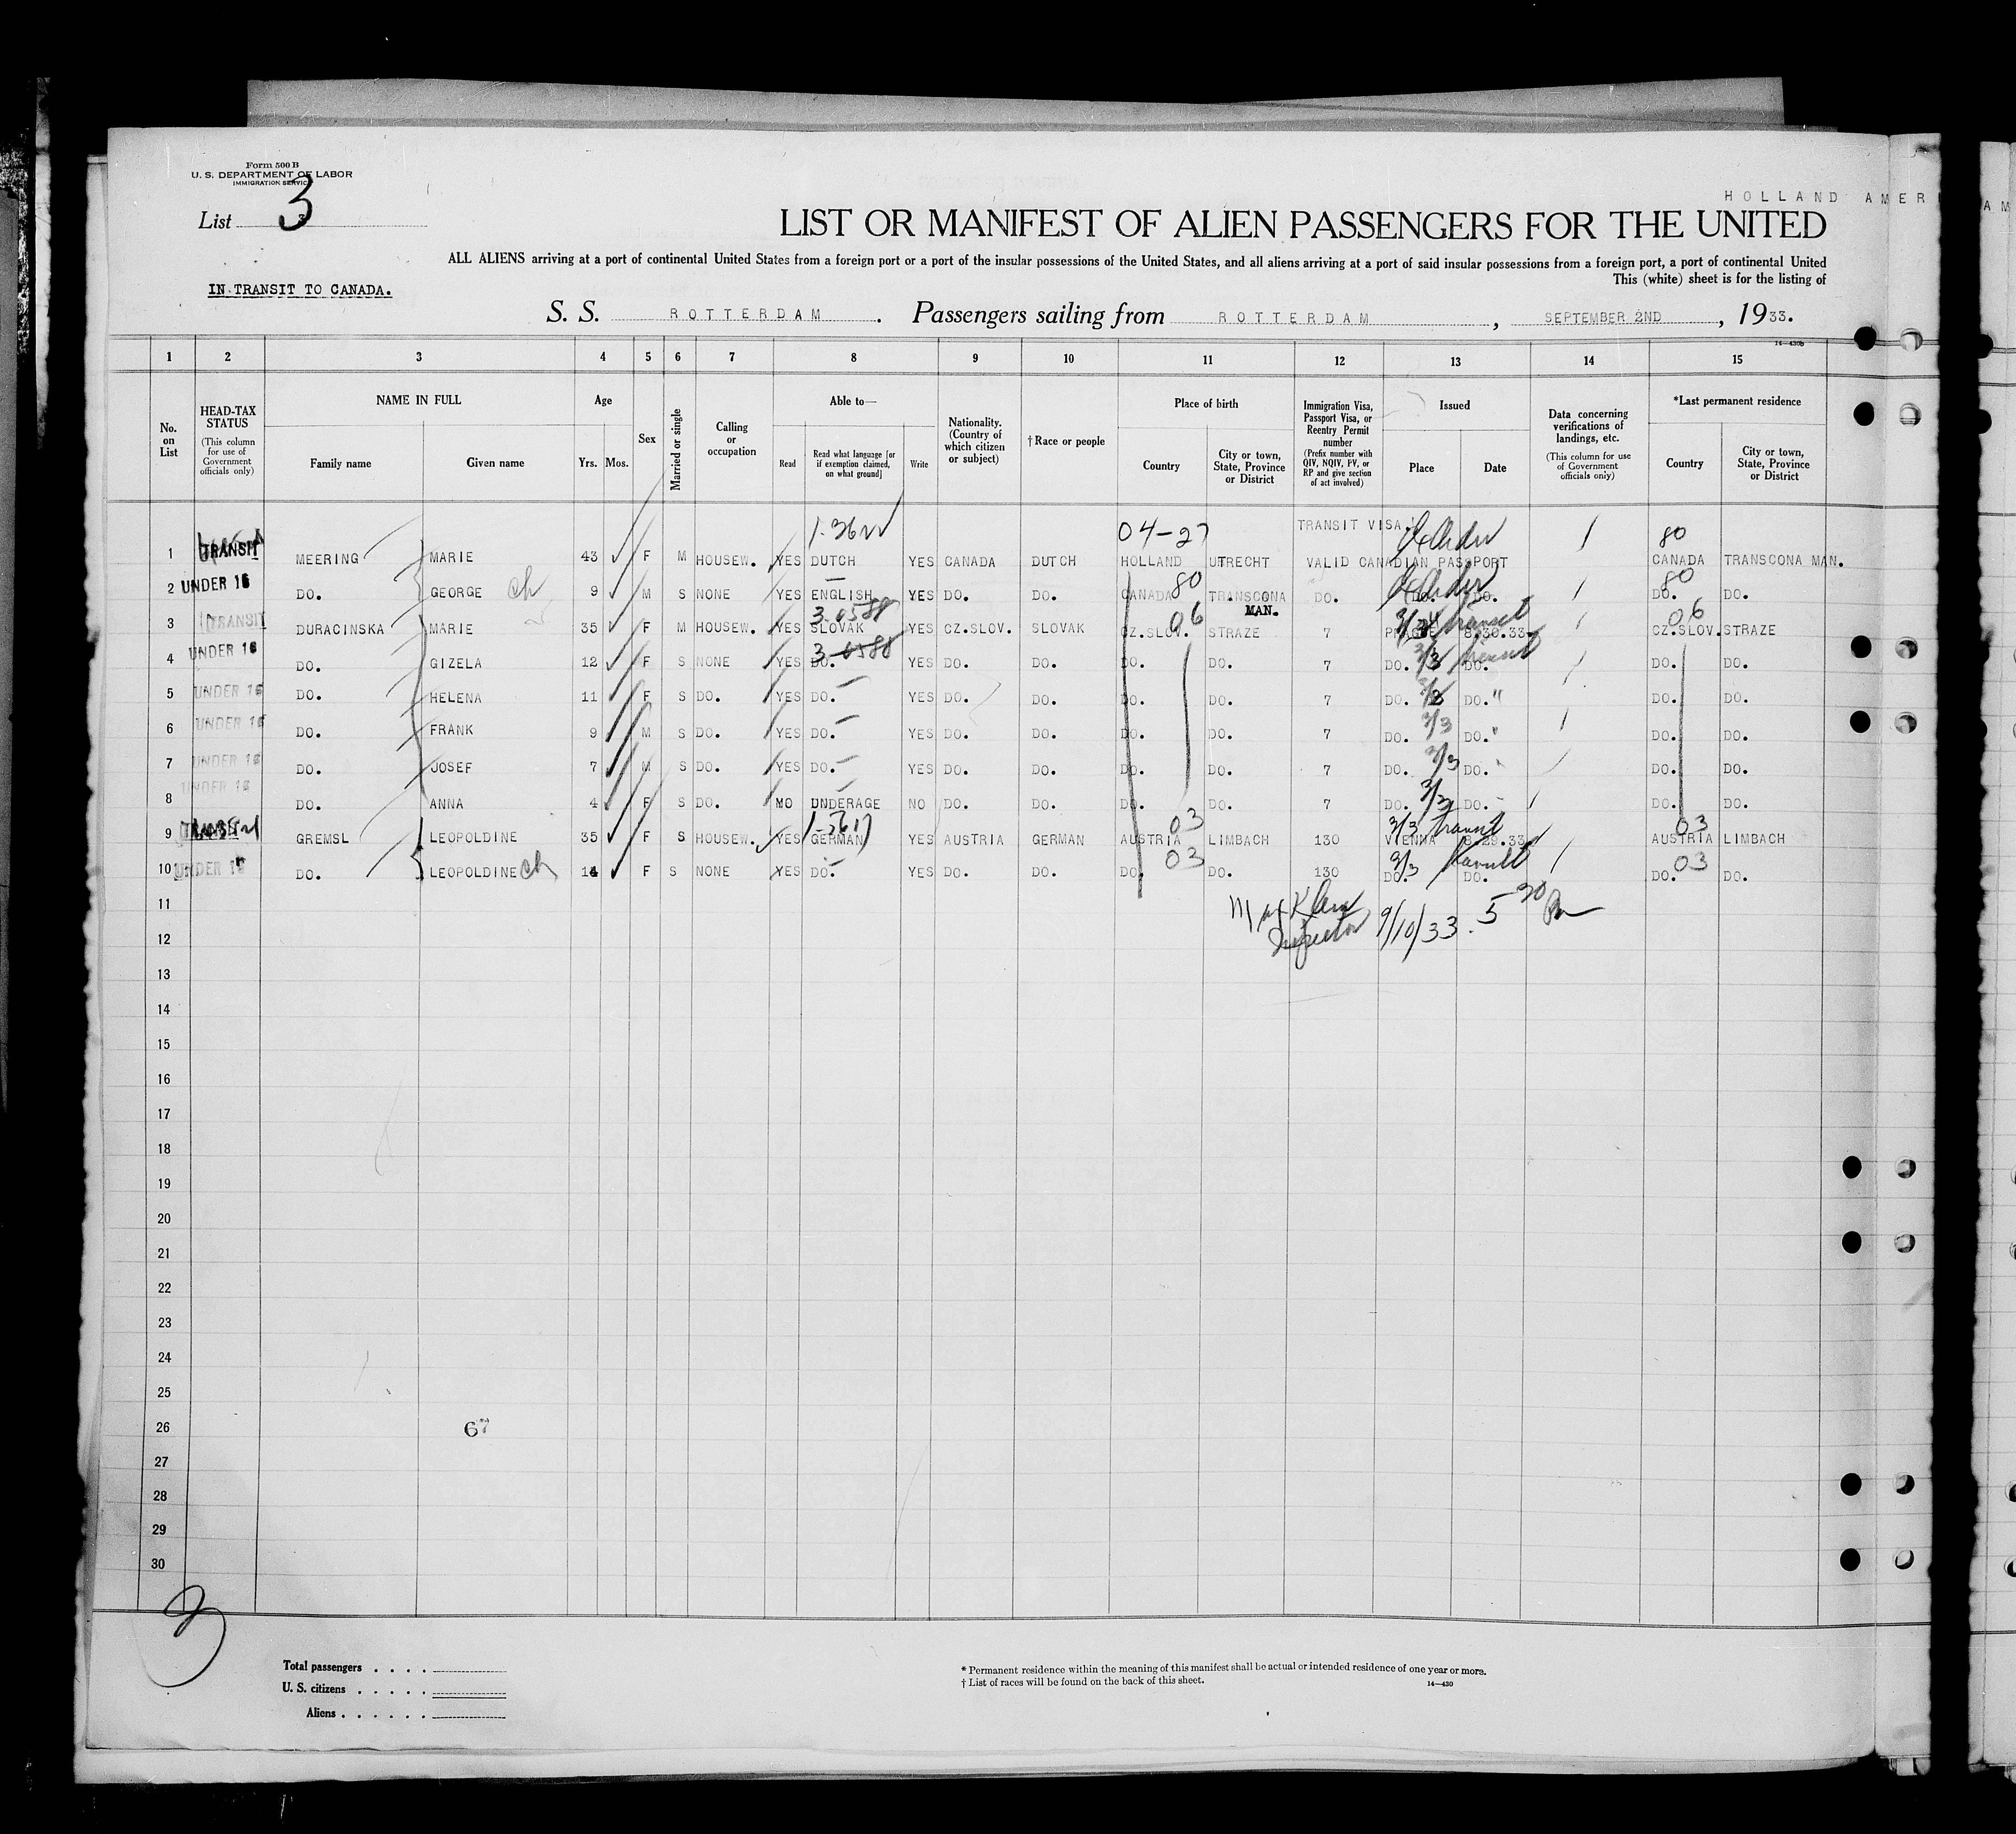 Form 500 B
U. S. DEPARTMENT OF LABOR
IMMIGRATION SERVICE
List 3
HOLLAND AMERI
LIST OR MANIFEST OF ALIEN PASSENGERS FOR THE UNITED
ALL ALIENS arriving at a port of continental United States from a foreign port or a port of the insular possessions of the United States, and all aliens arriving at a port of said insular possessions from a foreign port, a port of continental United
This (white) sheet is for the listing of
IN TRANSIT TO CANADA.
S. S. ROTTERDAM. Passengers sailing from ROTTERDAM, SEPTEMBER 2ND, 1933.
1 2 3 4 5 6 7 8 9 10 11 12 13 14 15
No. on List
HEAD-TAX STATUS (This column for use of Government officials only)
NAME IN FULL Family name Given name
Age Yrs. Mos.
Sex
Married or single
Calling or occupation
Able to— Read Read what language [or if exemption claimed, on what ground] Write
Nationality. (Country of which citizen or subject)
† Race or people
Place of birth Country City or town, State, Province or District
Immigration Visa, Passport Visa, or Reentry Permit number (Prefix number with QIV, NQIV, PV, or RP and give section of act involved)
Issued Place Date
Data concerning verifications of landings, etc. (This column for use of Government officials only)
*Last permanent residence Country City or town, State, Province or District
04-27 TRANSIT VISA. 80
1 TRANSIT MEERING MARIE 43 F M HOUSEW. YES DUTCH YES CANADA DUTCH HOLLAND UTRECHT VALID CANADIAN PASSPORT CANADA TRANSCONA MAN.
2 UNDER 16 DO. GEORGE ch 9 M S NONE YES ENGLISH YES DO. DO. CANADA 80 TRANSCONA MAN. DO. DO. DO. 80 DO. DO.
3 TRANSIT DURACINSKA MARIE 35 F M HOUSEW. YES SLOVAK YES CZ.SLOV. SLOVAK CZ.SLOV. 06 STRAZE 7 PRAGUE 8.30.33. CZ.SLOV. 06 STRAZE
4 UNDER 16 DO. GIZELA 12 F S NONE YES DO. YES DO. DO. DO. DO. 7 DO. 3/3 DO. DO. DO.
5 UNDER 16 DO. HELENA 11 F S DO. YES DO. YES DO. DO. DO. DO. 7 DO. DO. " DO. DO.
6 UNDER 16 DO. FRANK 9 M S DO. YES DO. YES DO. DO. DO. DO. 7 DO. 3/3 DO. " DO. DO.
7 UNDER 16 DO. JOSEF 7 M S DO. YES DO. YES DO. DO. DO. DO. 7 DO. 3/3 DO. DO. DO.
8 UNDER 16 DO. ANNA 4 F S DO. NO UNDERAGE NO DO. DO. DO. DO. 7 DO. 3/3 DO. DO. DO.
9 TRANSIT GREMSL LEOPOLDINE 35 F S HOUSEW. YES GERMAN YES AUSTRIA GERMAN AUSTRIA 03 LIMBACH 130 VIENNA 3/3 transit 8.29.33 AUSTRIA 03 LIMBACH
10 UNDER 16 DO. LEOPOLDINE ch 14 F S NONE YES DO. YES DO. DO. DO. 03 DO. 130 DO. 3/3 DO. DO. 03 DO.
11 Inspector 9/10/33. 5 30 Pm
12
13
14
15
16
17
18
19
20
21
22
23
24
25
26 67
27
28
29
30
3
Total passengers . . . .
U. S. citizens . . . . .
Aliens . . . . . .
* Permanent residence within the meaning of this manifest shall be actual or intended residence of one year or more.
† List of races will be found on the back of this sheet.
14—430